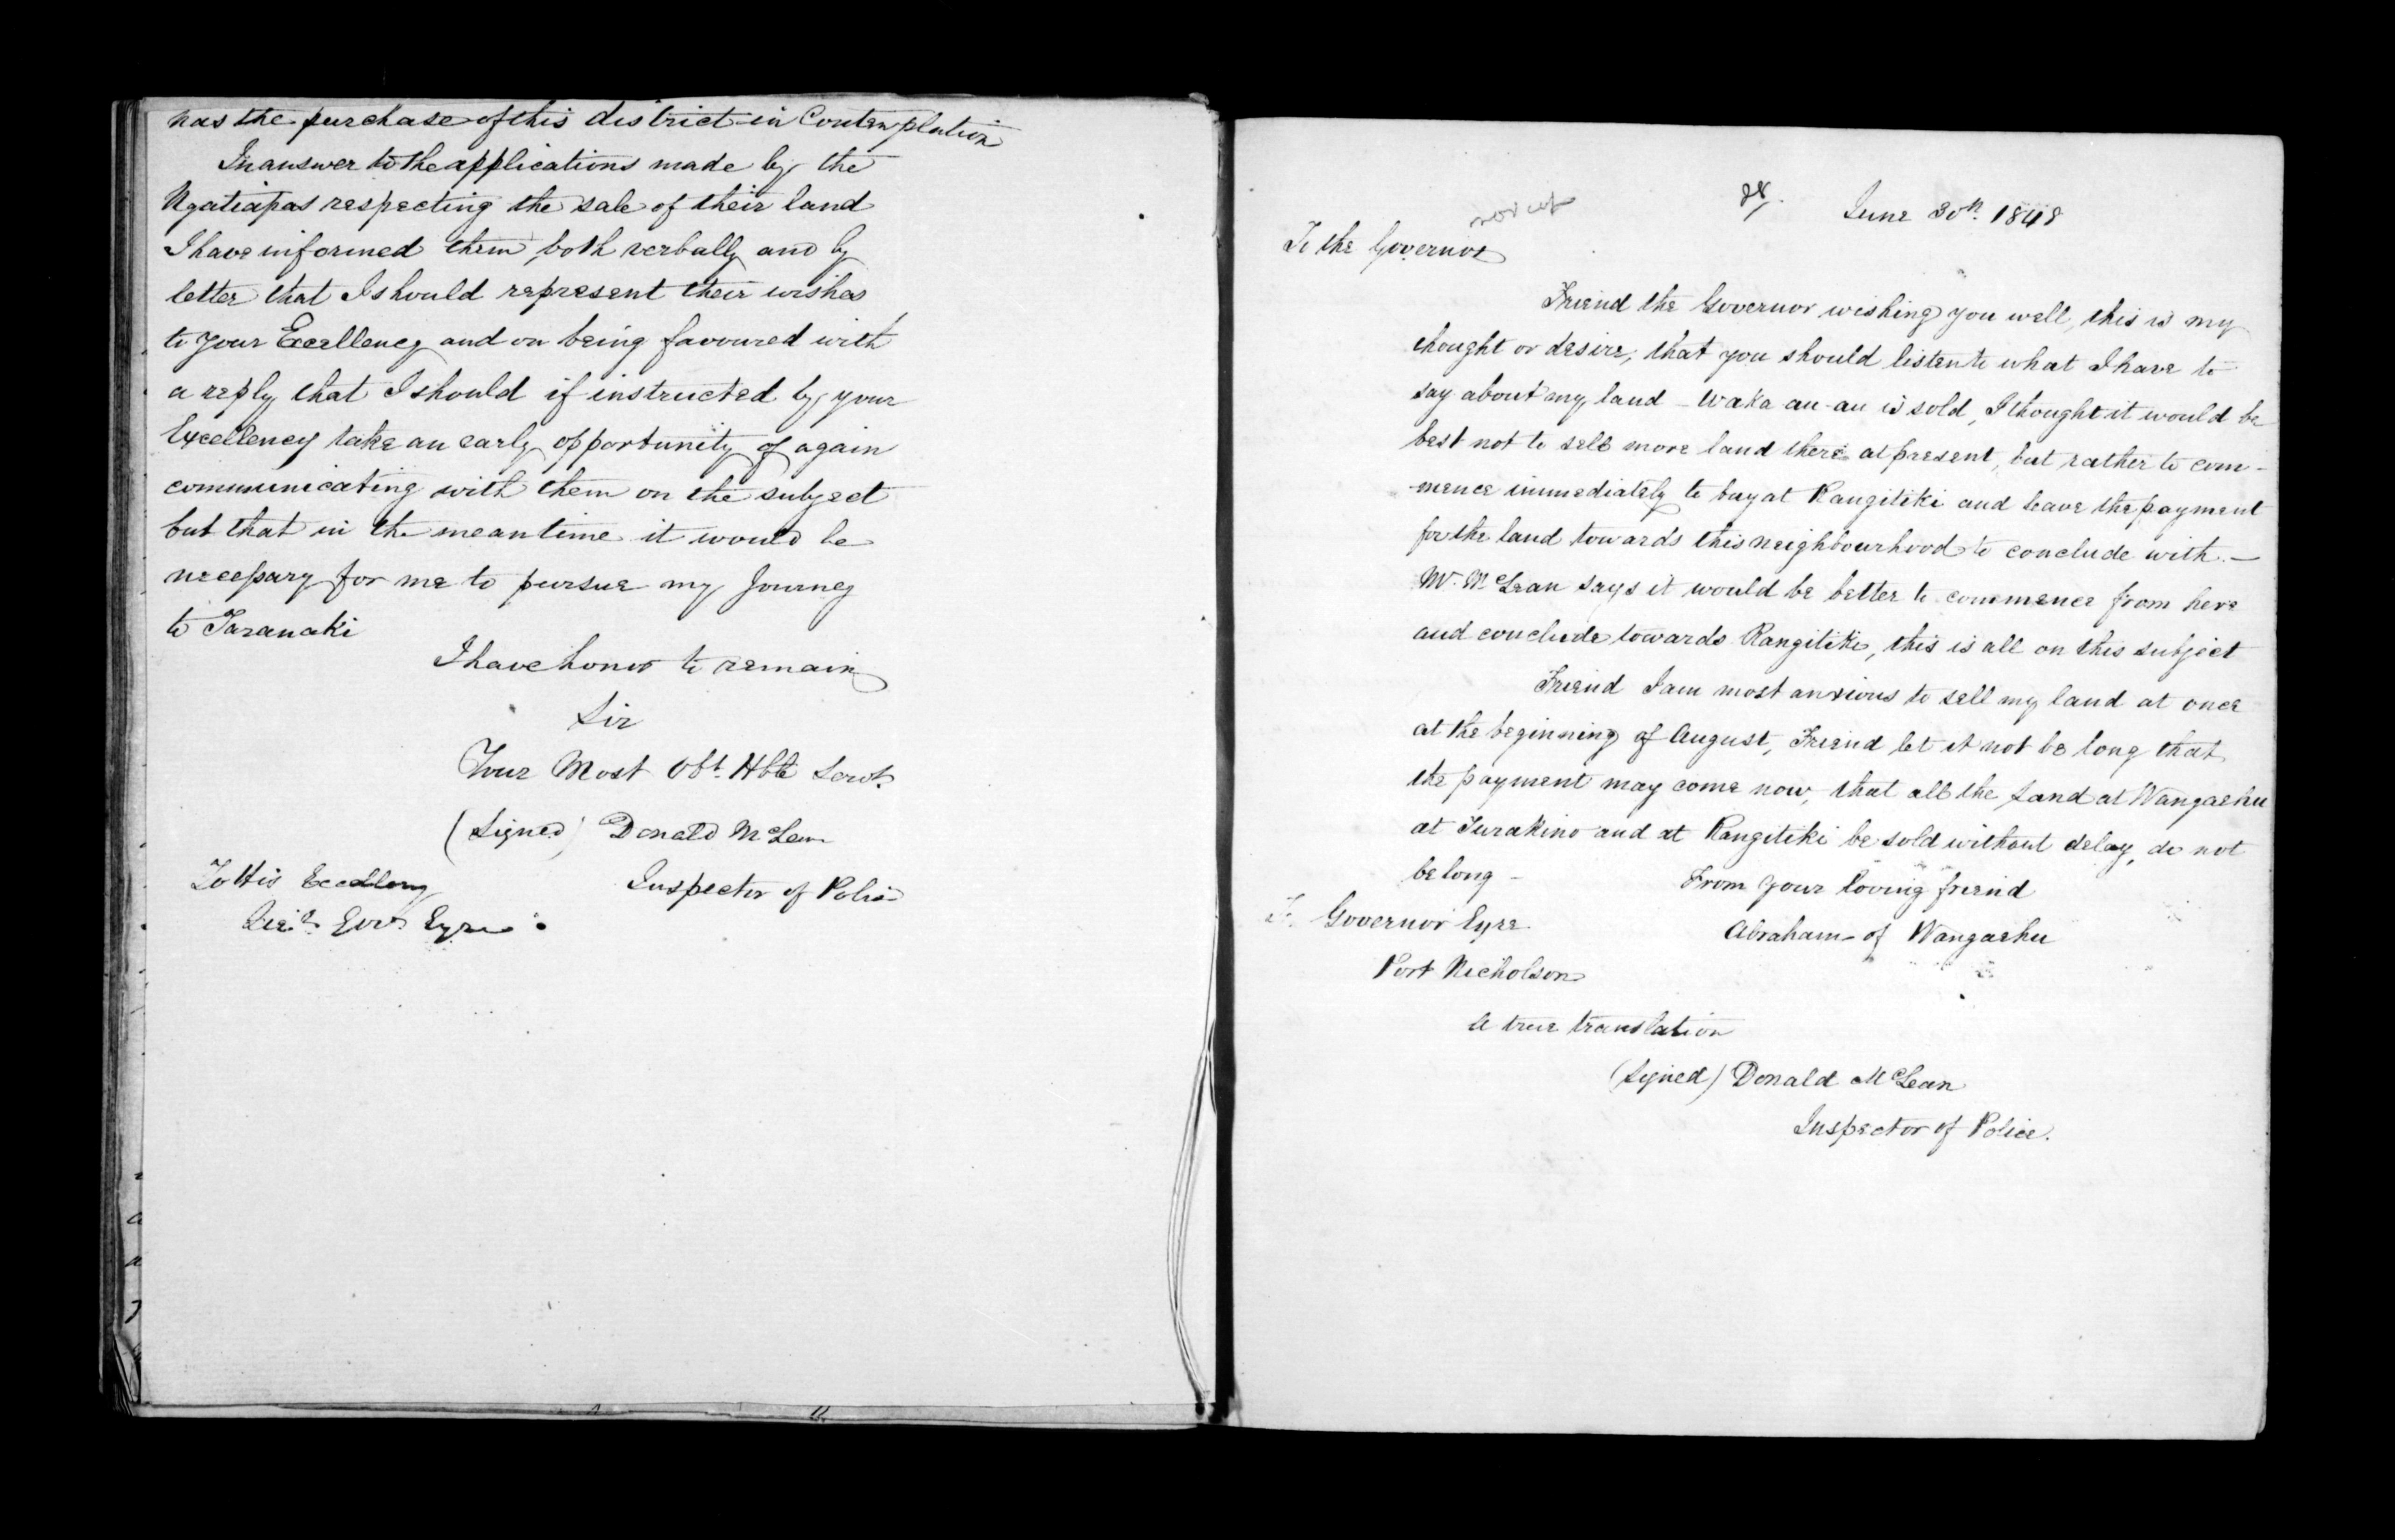 has the purchase of this district in Contemplation
In answer to the applications made by the
Ngatiapas respecting the sale of their land
I have informed them, both verbally and by
letter that I should represent their wishes
to your Excellency and on being favoured with
a reply that I should if instructed by your
Excellency take an early opportunity of again
communicating with them on the subject
but that in the meantime it would be
necessary for me to pursue my Journey
to Taranaki
I have honor to remain
Sir
Your Most Obt. Hble Servt.
(Signed) Donald McLean
Inspector of Police
To His Excellency
Lieut Govr Eyre
28/.
June 30th. 1848
To the Governor
Friend the Governor wishing you well, this is my
thought or desire, that you should listen to what I have to
say about my land - Waka-au-au is sold, I thought it would be
best not to sell more land there at present, but rather to com-
mence immediately to buy at Rangitiki and leave the payment
for the land towards this neighbourhood to conclude with. -
Mr. McLean says it would be better to commence from here
and conclude towards Rangitiki, this is all on this subject
Friend I am most anxious to sell my land at once
at the beginning of August, Friend let it not be long that
the payment may come now, that all the Land at Wangaehu
at Turakino and at Rangitiki be sold without delay, do not
be long -
From your loving friend
Abraham of Wangaehu
To Governor Eyre
Port Nicholson
A true translation
(Signed) Donald McLean
Inspector of Police.